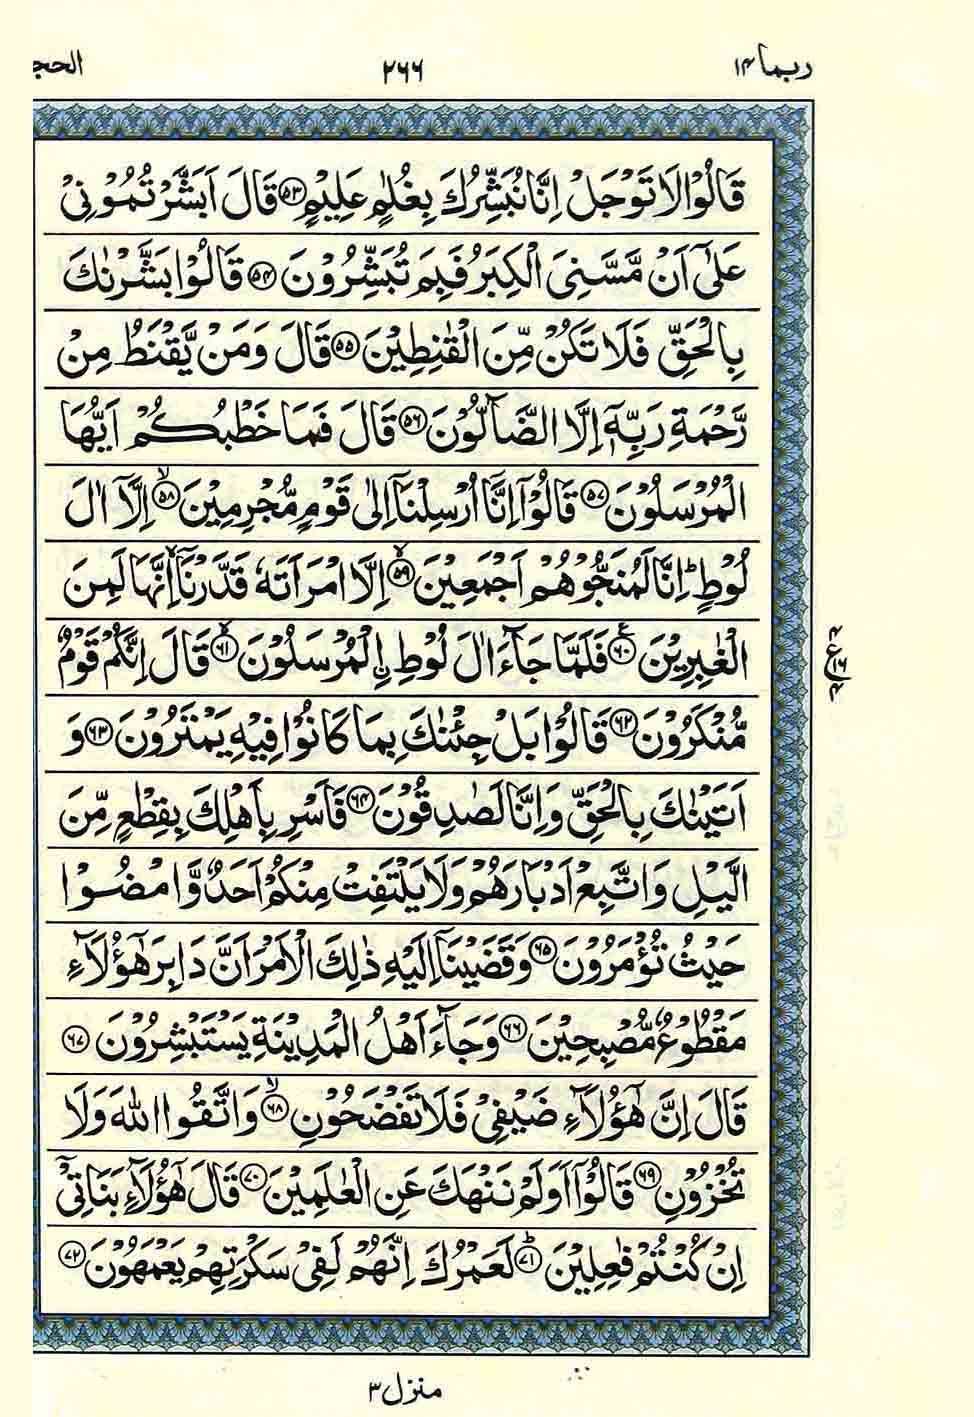 ربما ۱۴
۲۶۶
الحجر
قَالُوْا لَا تَوْجَلْ اِنَّا نُبَشِّرُكَ بِغُلٰمٍ عَلِيْمٍ ۝۵۳ قَالَ اَبَشَّرْتُمُوْنِيْ
عَلٰۤى اَنْ مَّسَّنِيَ الْكِبَرُ فَبِمَ تُبَشِّرُوْنَ ۝۵۴ قَالُوْا بَشَّرْنٰكَ
بِالْحَقِّ فَلَا تَكُنْ مِّنَ الْقٰنِطِيْنَ ۝۵۵ قَالَ وَمَنْ يَّقْنَطُ مِنْ
رَّحْمَةِ رَبِّهٖۤ اِلَّا الضَّآلُّوْنَ ۝۵۶ قَالَ فَمَا خَطْبُكُمْ اَيُّهَا
الْمُرْسَلُوْنَ ۝۵۷ قَالُوْۤا اِنَّاۤ اُرْسِلْنَاۤ اِلٰى قَوْمٍ مُّجْرِمِيْنَ ۙ۝۵۸ اِلَّاۤ اٰلَ
لُوْطٍ ؕ اِنَّا لَمُنَجُّوْهُمْ اَجْمَعِيْنَ ۙ۝۵۹ اِلَّا امْرَاَتَهٗ قَدَّرْنَاۤ ۙ اِنَّهَا لَمِنَ
الْغٰبِرِيْنَ ۠۝۶۰ فَلَمَّا جَآءَ اٰلَ لُوْطِ ِۨالْمُرْسَلُوْنَ ۙ۝۶۱ قَالَ اِنَّكُمْ قَوْمٌ
۴ ع ۱۶ ۴
مُّنْكَرُوْنَ ۝۶۲ قَالُوْا بَلْ جِئْنٰكَ بِمَا كَانُوْا فِيْهِ يَمْتَرُوْنَ ۝۶۳ وَ
اَتَيْنٰكَ بِالْحَقِّ وَاِنَّا لَصٰدِقُوْنَ ۝۶۴ فَاَسْرِ بِاَهْلِكَ بِقِطْعٍ مِّنَ
الَّيْلِ وَاتَّبِعْ اَدْبَارَهُمْ وَلَا يَلْتَفِتْ مِنْكُمْ اَحَدٌ وَّامْضُوْا
حَيْثُ تُؤْمَرُوْنَ ۝۶۵ وَقَضَيْنَاۤ اِلَيْهِ ذٰلِكَ الْاَمْرَ اَنَّ دَابِرَ هٰۤؤُلَآءِ
مَقْطُوْعٌ مُّصْبِحِيْنَ ۝۶۶ وَجَآءَ اَهْلُ الْمَدِيْنَةِ يَسْتَبْشِرُوْنَ ۝۶۷
قَالَ اِنَّ هٰۤؤُلَآءِ ضَيْفِيْ فَلَا تَفْضَحُوْنِ ۙ۝۶۸ وَاتَّقُوا اللّٰهَ وَلَا
تُخْزُوْنِ ۝۶۹ قَالُوْۤا اَوَلَمْ نَنْهَكَ عَنِ الْعٰلَمِيْنَ ۝۷۰ قَالَ هٰۤؤُلَآءِ بَنَاتِيْۤ
اِنْ كُنْتُمْ فٰعِلِيْنَ ؕ۝۷۱ لَعَمْرُكَ اِنَّهُمْ لَفِيْ سَكْرَتِهِمْ يَعْمَهُوْنَ ۝۷۲
منزل ۳